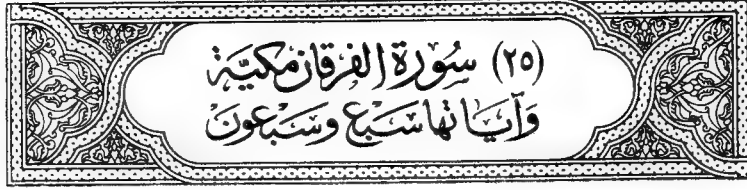 (٢٥) سُورَة الفُرقَان مَكيَّة
وَآيَاتها سَبع وسَبعون